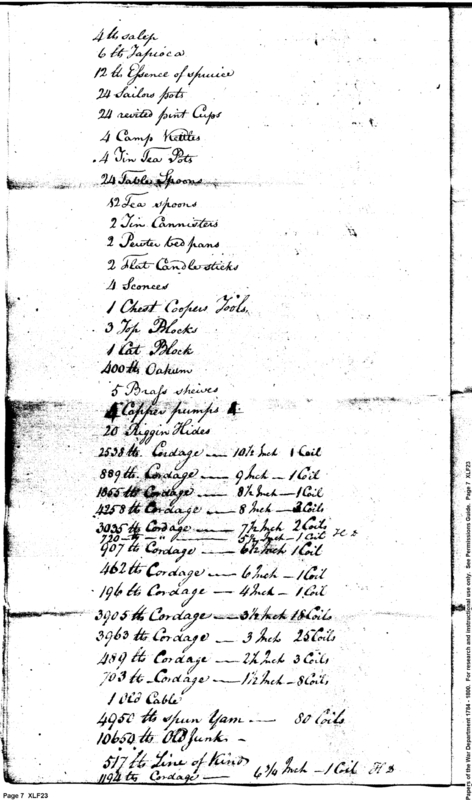 4 lb salep
6 lb Tapioca
12 lb Essence of spruice
24 Sailors pots
24 revited pint Cups
4 Camp Kettles
4 Tin Tea Pots
24 Table Spoons
12 Tea spoons
2 Tin Cannisters
2 Pewter bed pans
2 Flat Candlesticks
4 Sconces
1 Chest Coopers Tools
3 Top Blocks
1 Cat Block
400 lb Oakum
5 Brass sheives
4 Copper pumps 4
20 Riggin Hides
2538 lb Cordage — 10½ Inch 1 Coil
889 lb Cordage — 9 Inch — 1 Coil
1055 lb Cordage — 8½ Inch — 1 Coil
4258 lb Cordage — 8 Inch — Coils
3035 lb Cordage — 7½ Inch 2 Coils
720 lb — " — 5½ Inch — 1 Coil H D
907 lb Cordage — 6½ Inch 1 Coil
462 lb Cordage — 6 Inch — 1 Coil
196 lb Cordage — 4 Inch — 1 Coil
3905 lb Cordage — 3½ Inch 18 Coils
3963 lb Cordage — 3 Inch 25 Coils
489 lb Cordage — 2½ Inch 3 Coils
703 lb Cordage — 1½ Inch — 8 Coils
1 Old Cable
4950 lbs spun Yarn — 80 Coils
10650 lbs Old Junk —
517 lb Line of Kinds
1194 lb Cordage — 6¾ Inch — 1 Coil H D
Page 7 XLF23
Papers of the War Department 1784 - 1800. For research and instructional use only. See Permissions Guide. Page 7 XLF23